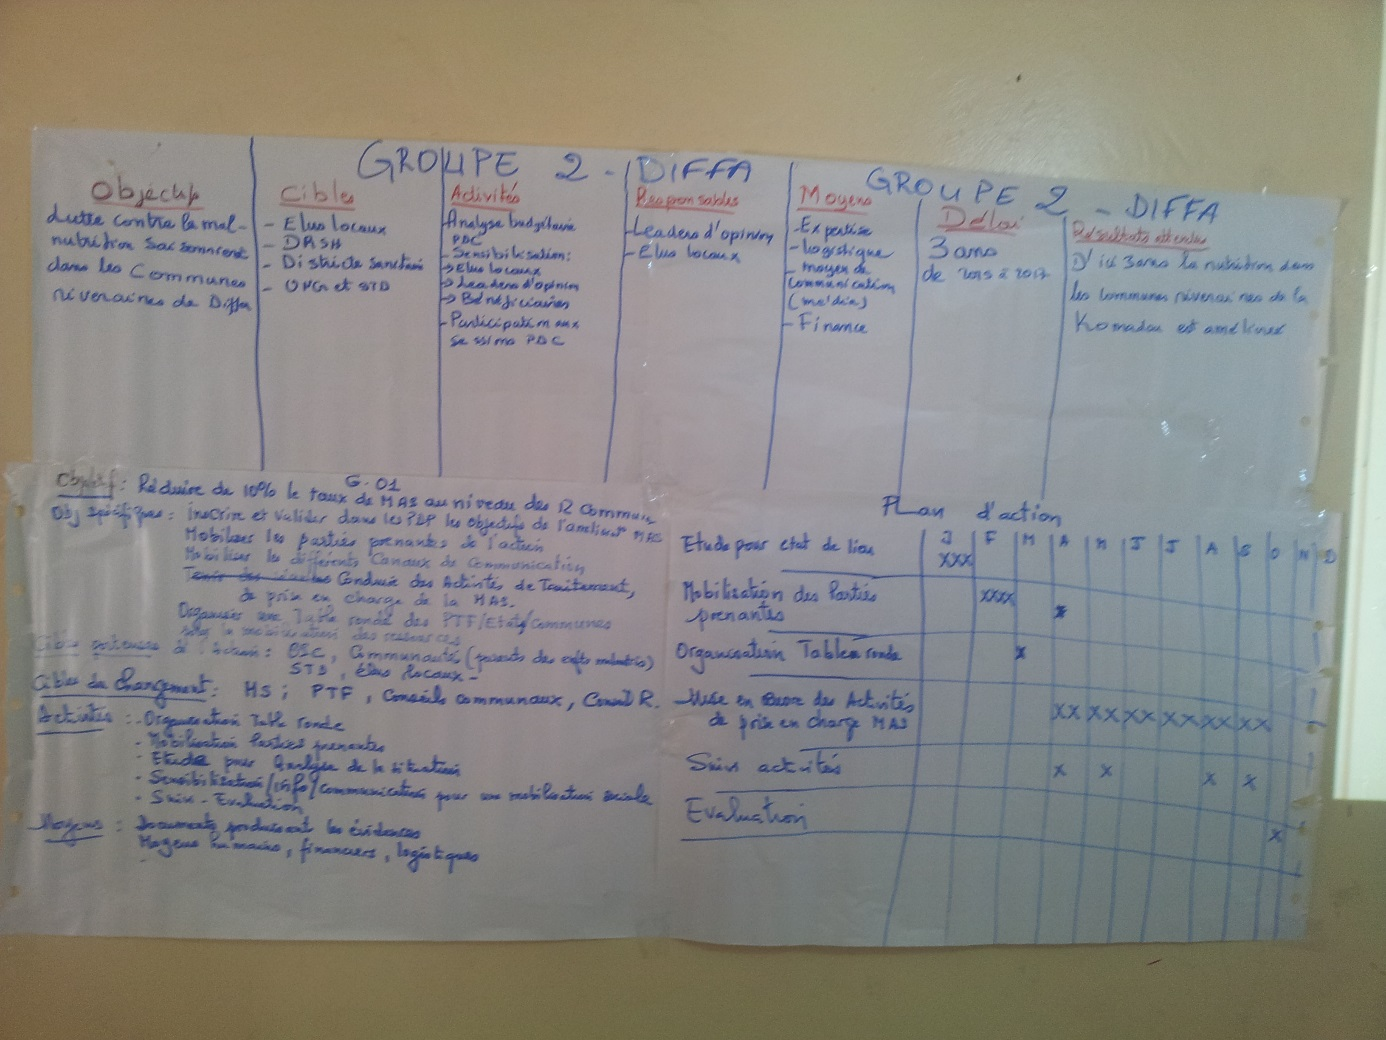 GROUPE 2 - DIFFA
GROUPE 2 - DIFFA
Objectifs
Lutte contre la mal-
nutrition
dans les Communes
riveraines de Diffa
Cibles
- Elus locaux
- DRSH
- Districts sanitai
- ONG et STD
Activités
- Analyse budgétaire
PDC
- Sensibilisation:
→ Elus locaux
→ Leaders d'opinion
→ Bénéficiaires
- Participation aux
sessions PDC
Responsables
- Leaders d'opinion
- Elus locaux
Moyens
- Expertise
- logistique
- moyen de
communication
(média)
- Finance
Délai
3 ans
de 2015 à 2017
Résultats attendus
D'ici 3 ans la nutrition dans
les communes riveraines de la
Komadou est améliorée
G.01
Objectif : Réduire de 10% le taux de MAS au niveau des 12 Communes
Obj spécifiques : inscrire et valider dans les PDP les objectifs de l'amélior° MAS
Mobiliser les parties prenantes de l'action
Mobiliser les différents Canaux de Communication
Conduire des Activités de Traitement,
de prise en charge de la MAS.
Organiser une Table ronde des PTF/Etat/communes
pour la mobilisation des ressources
Cibles partenaires de l'Action : OSC, Communautés (parents des enfts malnutris)
STD, élus locaux -
Cibles du changement : MS ; PTF, Conseils communaux, Conseil R.
Activités : - Organisation Table ronde
- Mobilisation Parties prenantes
- Etude pour Analyse de la situation
- Sensibilisation/info/communication pour une mobilisation sociale
- Suivi - Evaluation
Moyens : Documents produisant les évidences
Moyens humains, financiers, logistiques
Plan d'action
J F M A M J J A S O N D
Etude pour etat de lieu xxx
Mobilisation des Parties xxxx
prenantes x
Organisation Table ronde x
Mise en œuvre des Activités
de prise en charge MAS xx xx xx xx xx xx
Suivi activités x x x x
Evaluation x